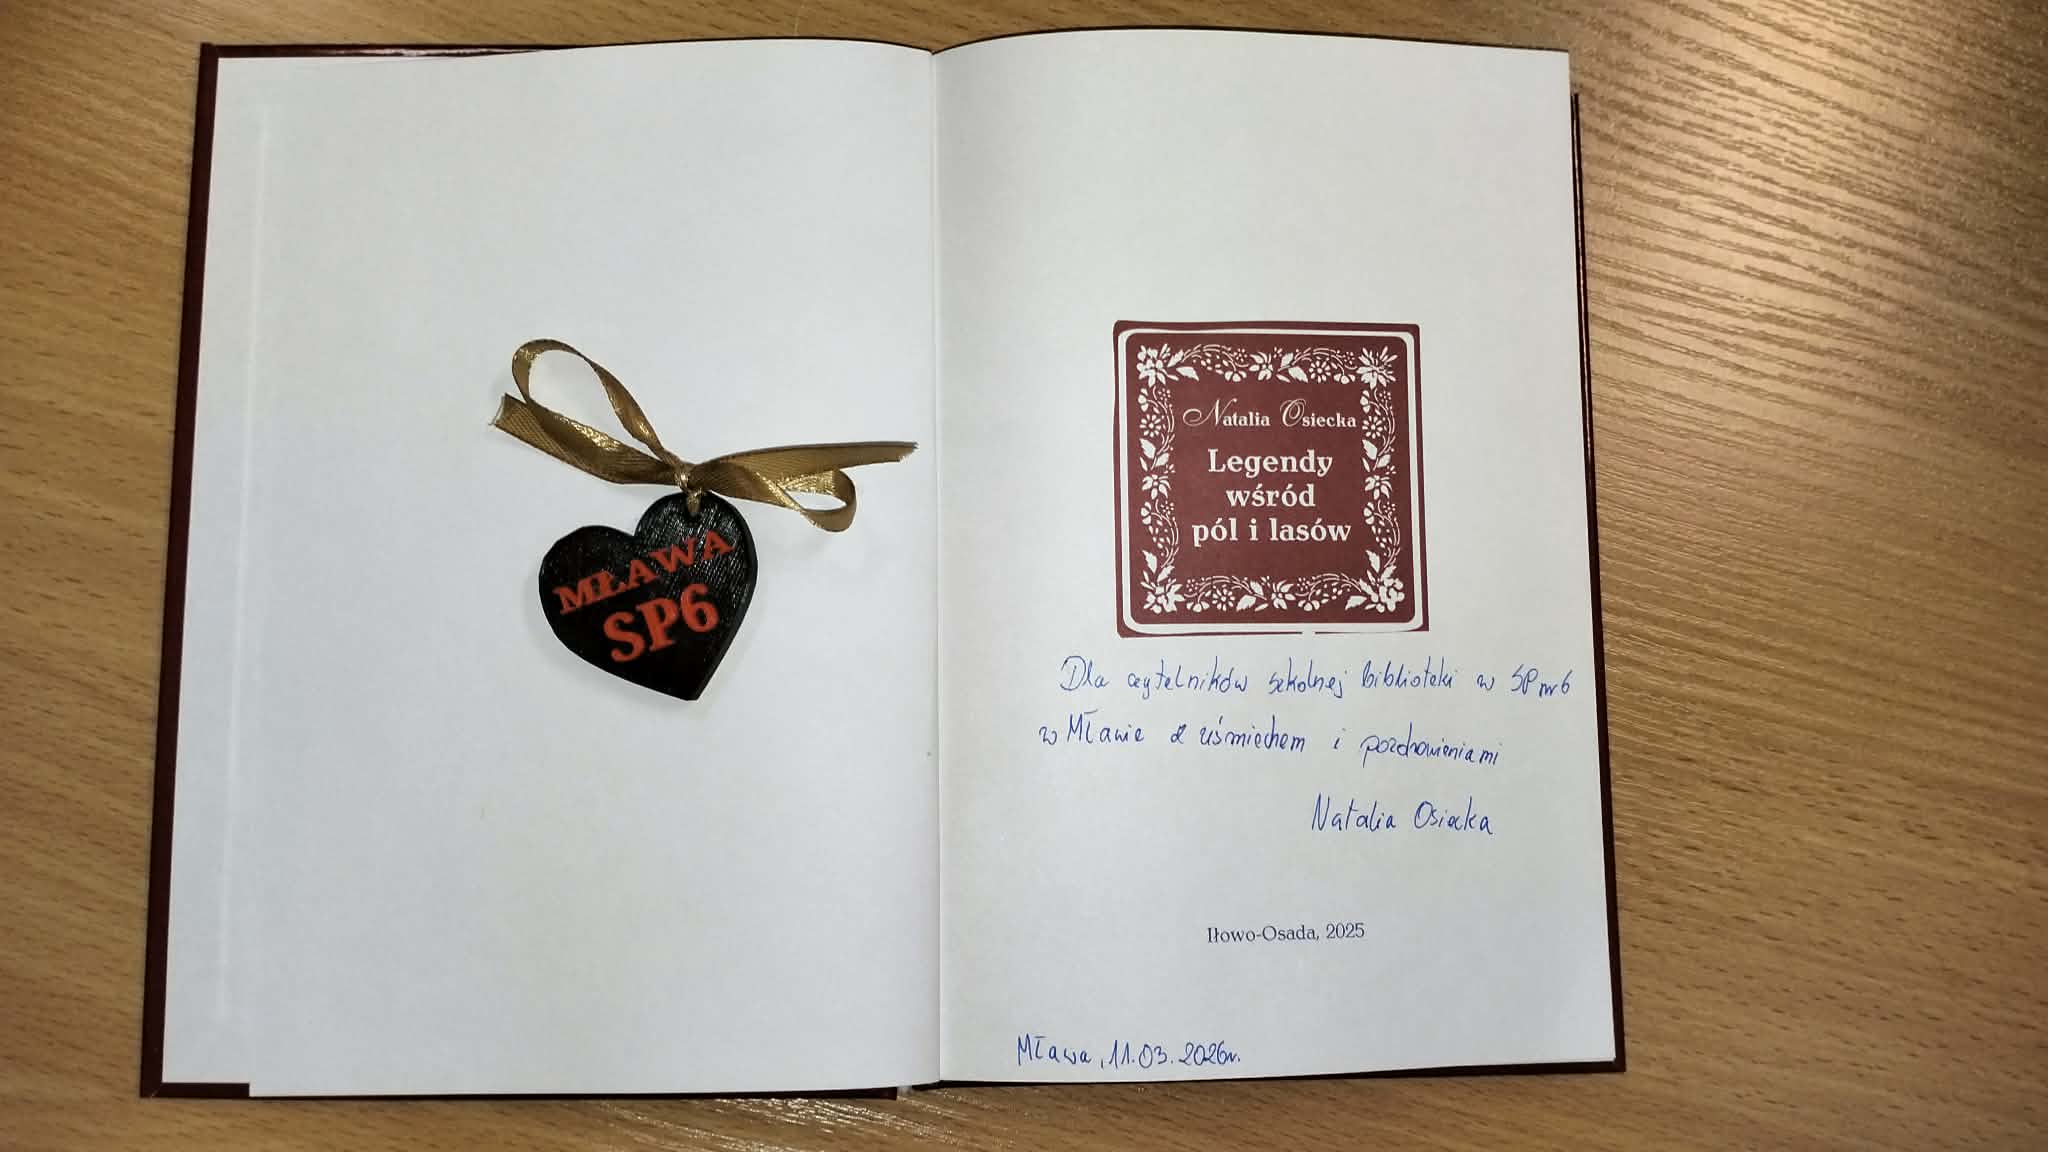 MŁAWA
SP6
Natalia Osiecka
Legendy
wśród
pól i lasów
Dla czytelników szkolnej biblioteki w SP nr 6
w Mławie z uśmiechem i pozdrowieniami
Natalia Osiecka
Iłowo-Osada, 2025
Mława, 11.03.2026r.